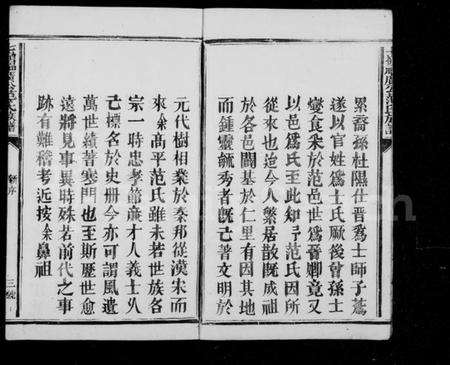 累裔孫杜隰仕晉爲士師子蒍
遂以官姓爲士氏厥後曾孫士
燮食采於范邑世爲晉卿竟又
以邑爲氏至此知了范氏因所
從來也迨今人繁居散既成祖
於各邑閥基於仁里有因其地
而鍾靈毓秀者既己著文明於
元代樹相業於秦邦從漢宋而
來余高平范氏雖未若世族各
宗一時忠孝節廉才人義士乆
己標名於史册今亦可謂風遺
萬世績著寒門也至斯歷世愈
遠將見事異時殊若前代之事
跡有難稽考近按余鼻祖
新序
三號